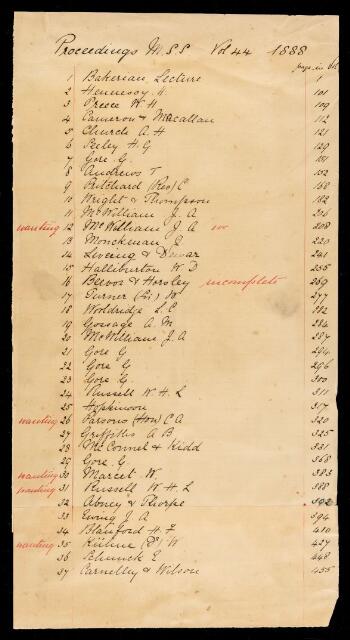 Proceedings M.S.S Vol 44 1888
page in
1 Bakerian Lecture 1
2 Hennessy H. 101
3 Preece W. H. 109
4 Cameron & Macallan 112
5 Church A. H 121
6 Seeley H. G 129
7 Gore G. 151
8 Andrews T 152
9 Pritchard (Rev) C 168
10 Wright & Thompson 182
11 McWilliam J. A 206
wanting 12 McWilliam J A 208
13 Monckman J 220
14 Liveing & Dewar 241
15 Halliburton W. D 255
16 Beevor & Horsley incomplete 269
17 Turner (Sir) W 277
18 Wooldridge L. C 282
19 Gossage A. M. 284
20 McWilliam J. A 287
21 Gore G 294
22 Gore G 296
23 Gore G. 300
24 Russell W. H. L 311
25 Hopkinson 317
wanting 26 Parsons (Hon) C A 320
27 Griffiths A B 325
28 McConnel & Kidd 331
29 Gore G. 368
wanting 30 Marcet W. 383
wanting 31 Russell W. H. L 388
32 Abney & Thorpe 392
33 Ewing J. A 394
34 Blanford H. F 410
wanting 35 Kühne (Dr) W 427
36 Schunck E 448
37 Carnelley & Wilson 455